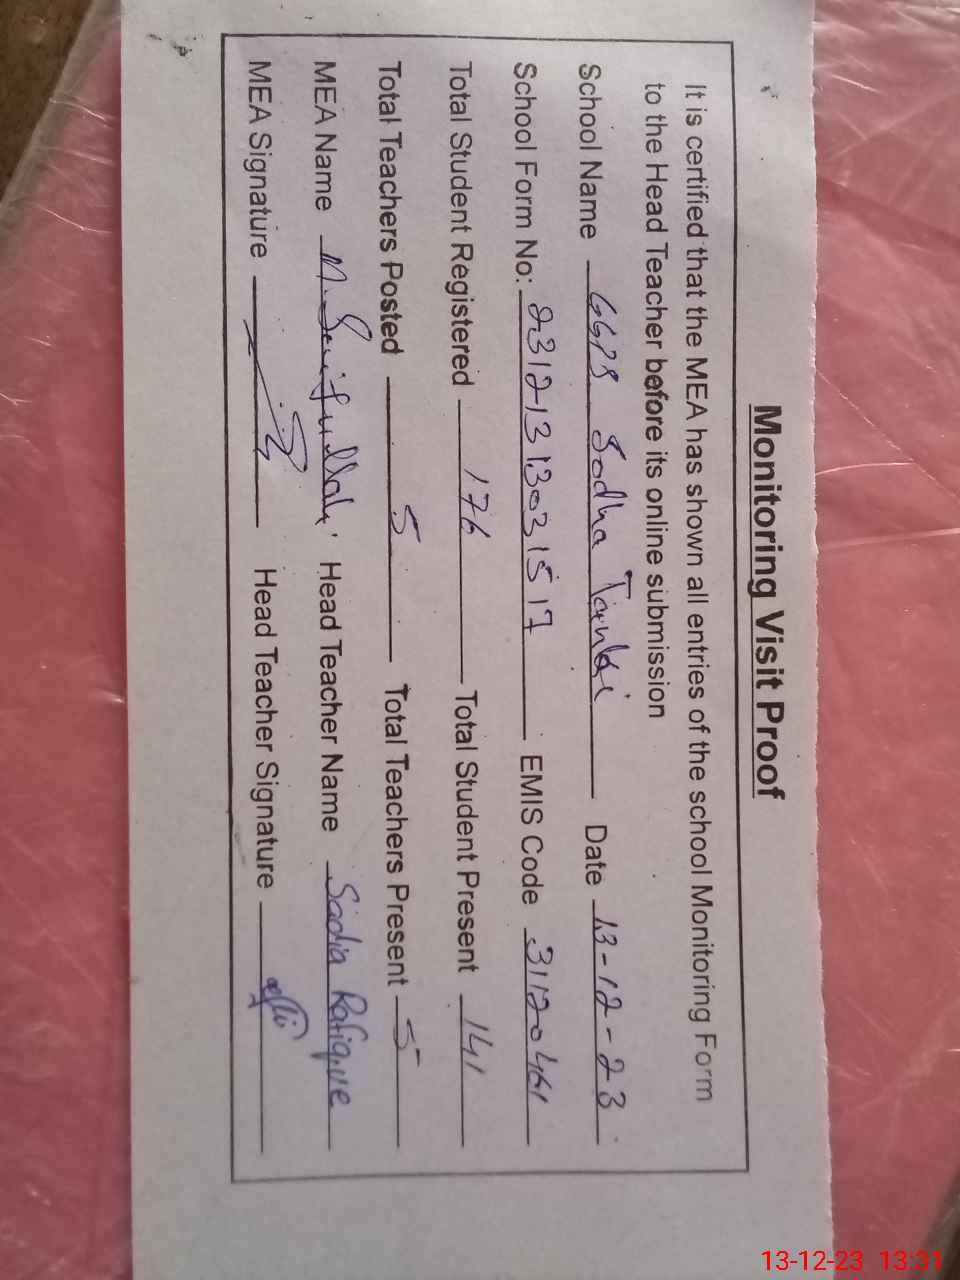 Monitoring Visit Proof
It is certified that the MEA has shown all entries of the school Monitoring Form
to the Head Teacher before its online submission
School Name GGPS Sodha Tarkki Date 13-12-23
School Form No: 23121313031517 EMIS Code 31120461
Total Student Registered 176 Total Student Present 141
Total Teachers Posted 5 Total Teachers Present 5
MEA Name M. Saifullah Head Teacher Name Sadia Rafique
MEA Signature Head Teacher Signature
13-12-23 13:31